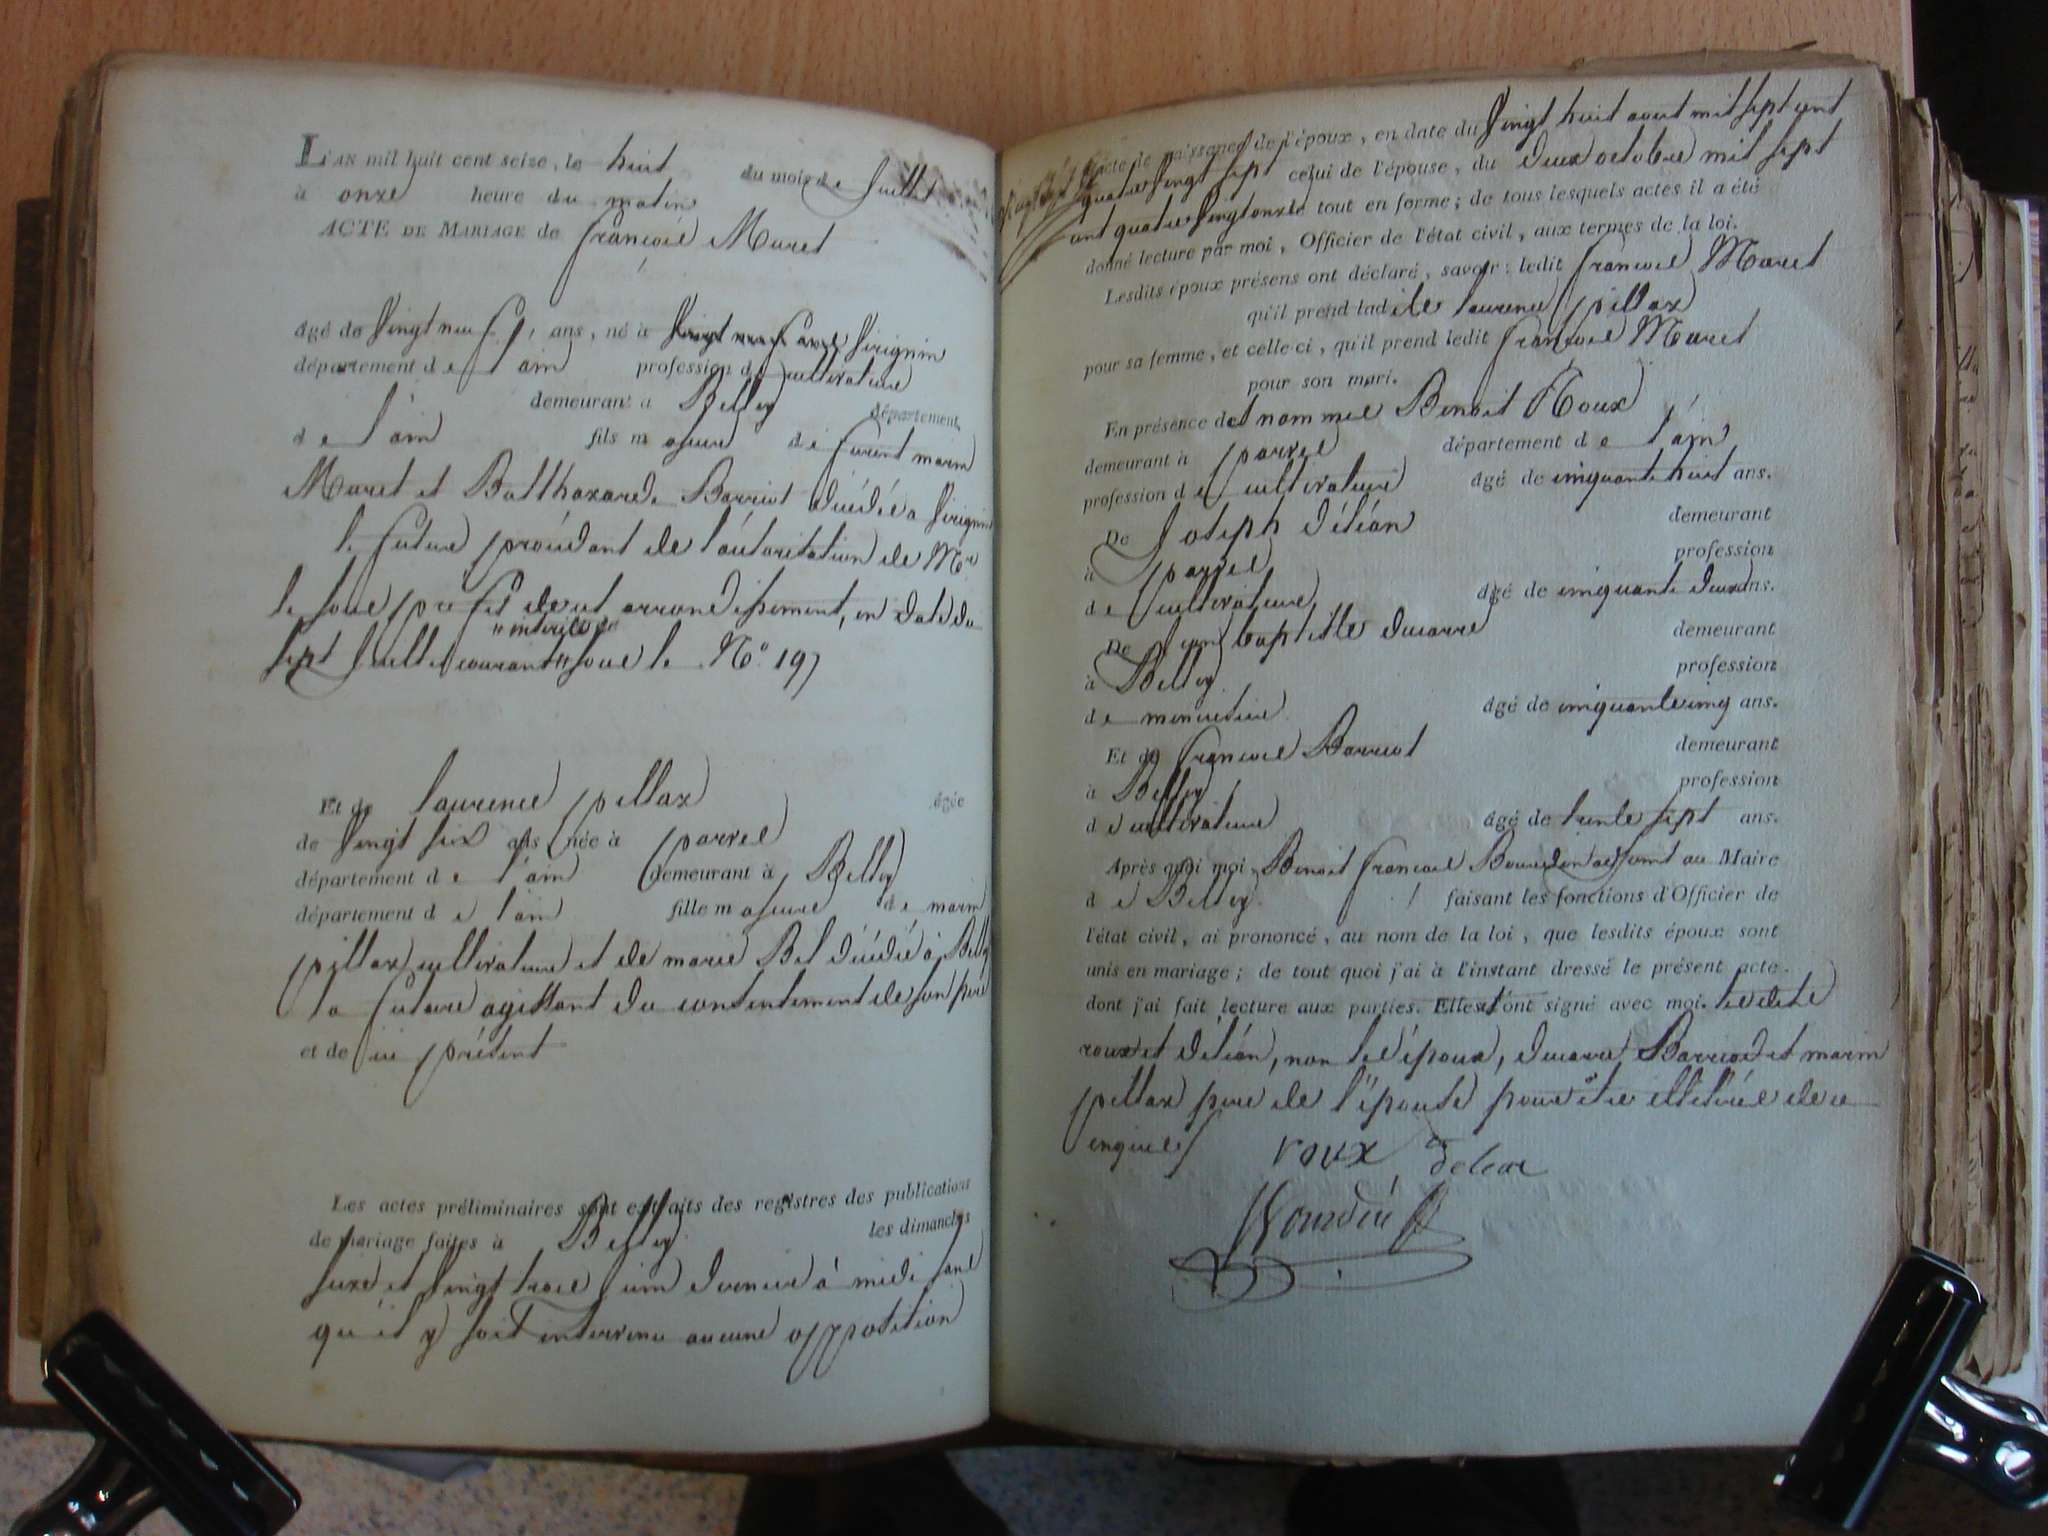 L'AN mil huit cent seize, le huit du mois de Juillet
à onze heure du matin
ACTE DE MARIAGE de françois Muret
âgé de vingt neuf ans, né à virignin
département de l'ain profession de cultivateur
demeurant à Belley département
de l'ain fils majeur de
Muret et Balthazarde Barriot décédée à virignin
le futur procédant de l'autorisation de Mr
le sous préfet de cet arrondissement, en date du
intérieur
sept Juillet courant sous le No. 197
Et de laurence pillaz âgée
de vingt six ans née à parvel
département de l'ain demeurant à Belley
département de l'ain fille majeure de marin
pillaz cultivateur et de marie Bel décédée à Belley
la future agissant du consentement de son père
et de ici présent
Les actes préliminaires sont extraits des registres des publications
de mariage faites à Belley les dimanches
seize et vingt trois juin dernier à midi sans
qu'il y soit intervenu aucune opposition
l'acte de naissance de l'époux, en date du vingt huit aout mil sept cent
quatre vingt sept celui de l'épouse, du deux octobre mil sept
cent quatre vingt onze le tout en forme; de tous lesquels actes il a été
donné lecture par moi, Officier de l'état civil, aux termes de la loi.
Lesdits époux présens ont déclaré, savoir: ledit françois Muret
qu'il prend ladite laurence pillaz
pour sa femme, et celle-ci, qu'il prend ledit françois Muret
pour son mari.
En présence des nommés Benoit Roux
demeurant à parvel département de l'ain
profession de cultivateur âgé de cinquante huit ans.
De Joseph déléan demeurant
à parvel profession
de cultivateur âgé de cinquante deux ans.
De Jean baptiste ducarre demeurant
à Belley profession
de menusier âgé de cinquante cinq ans.
Et de françois Barriot demeurant
à Belley profession
de cultivateur âgé de trente sept ans.
Après quoi moi Benoit françois Bourdin adjoint au Maire
de Belley faisant les fonctions d'Officier de
l'état civil, ai prononcé, au nom de la loi, que lesdits époux sont
unis en mariage; de tout quoi j'ai à l'instant dressé le présent acte.
dont j'ai fait lecture aux parties. Elles ont signé avec moi. lesdits
roux et déléan, non les époux, ducarre Barriod et marin
pillaz père de l'épouse pour être illitérés de ce
enquis
roux delean
Bourdin